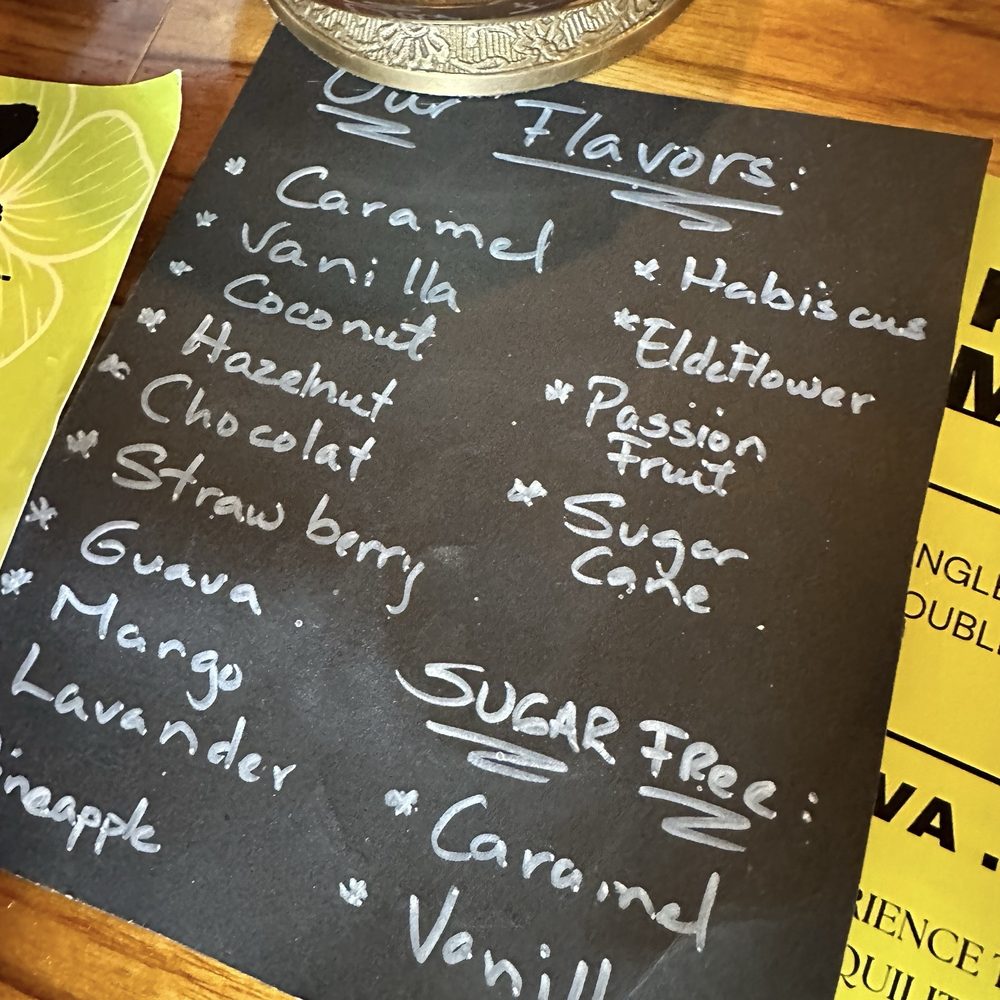 Our Flavors:
* Caramel
* Vanilla
* Coconut
* Hazelnut
* Chocolat
* Strawberry
* Guava
* Mango
Lavander
Pineapple
* Habiscus
* EldeFlower
* Passion
Fruit
* Sugar
Cane
SUGAR FRee:
* Caramel
* Vanill
NGLE
OUBL
VA .
RIENCE T
QUILIT